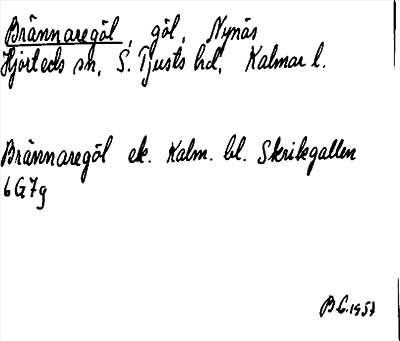 Brännaregöl, göl, Nynäs
Hjorteds sn, S. Tjusts hd, Kalmar l.
Brännaregöl ek. Kalm. bl. Skrikegallen
6G7g
B.G. 1957